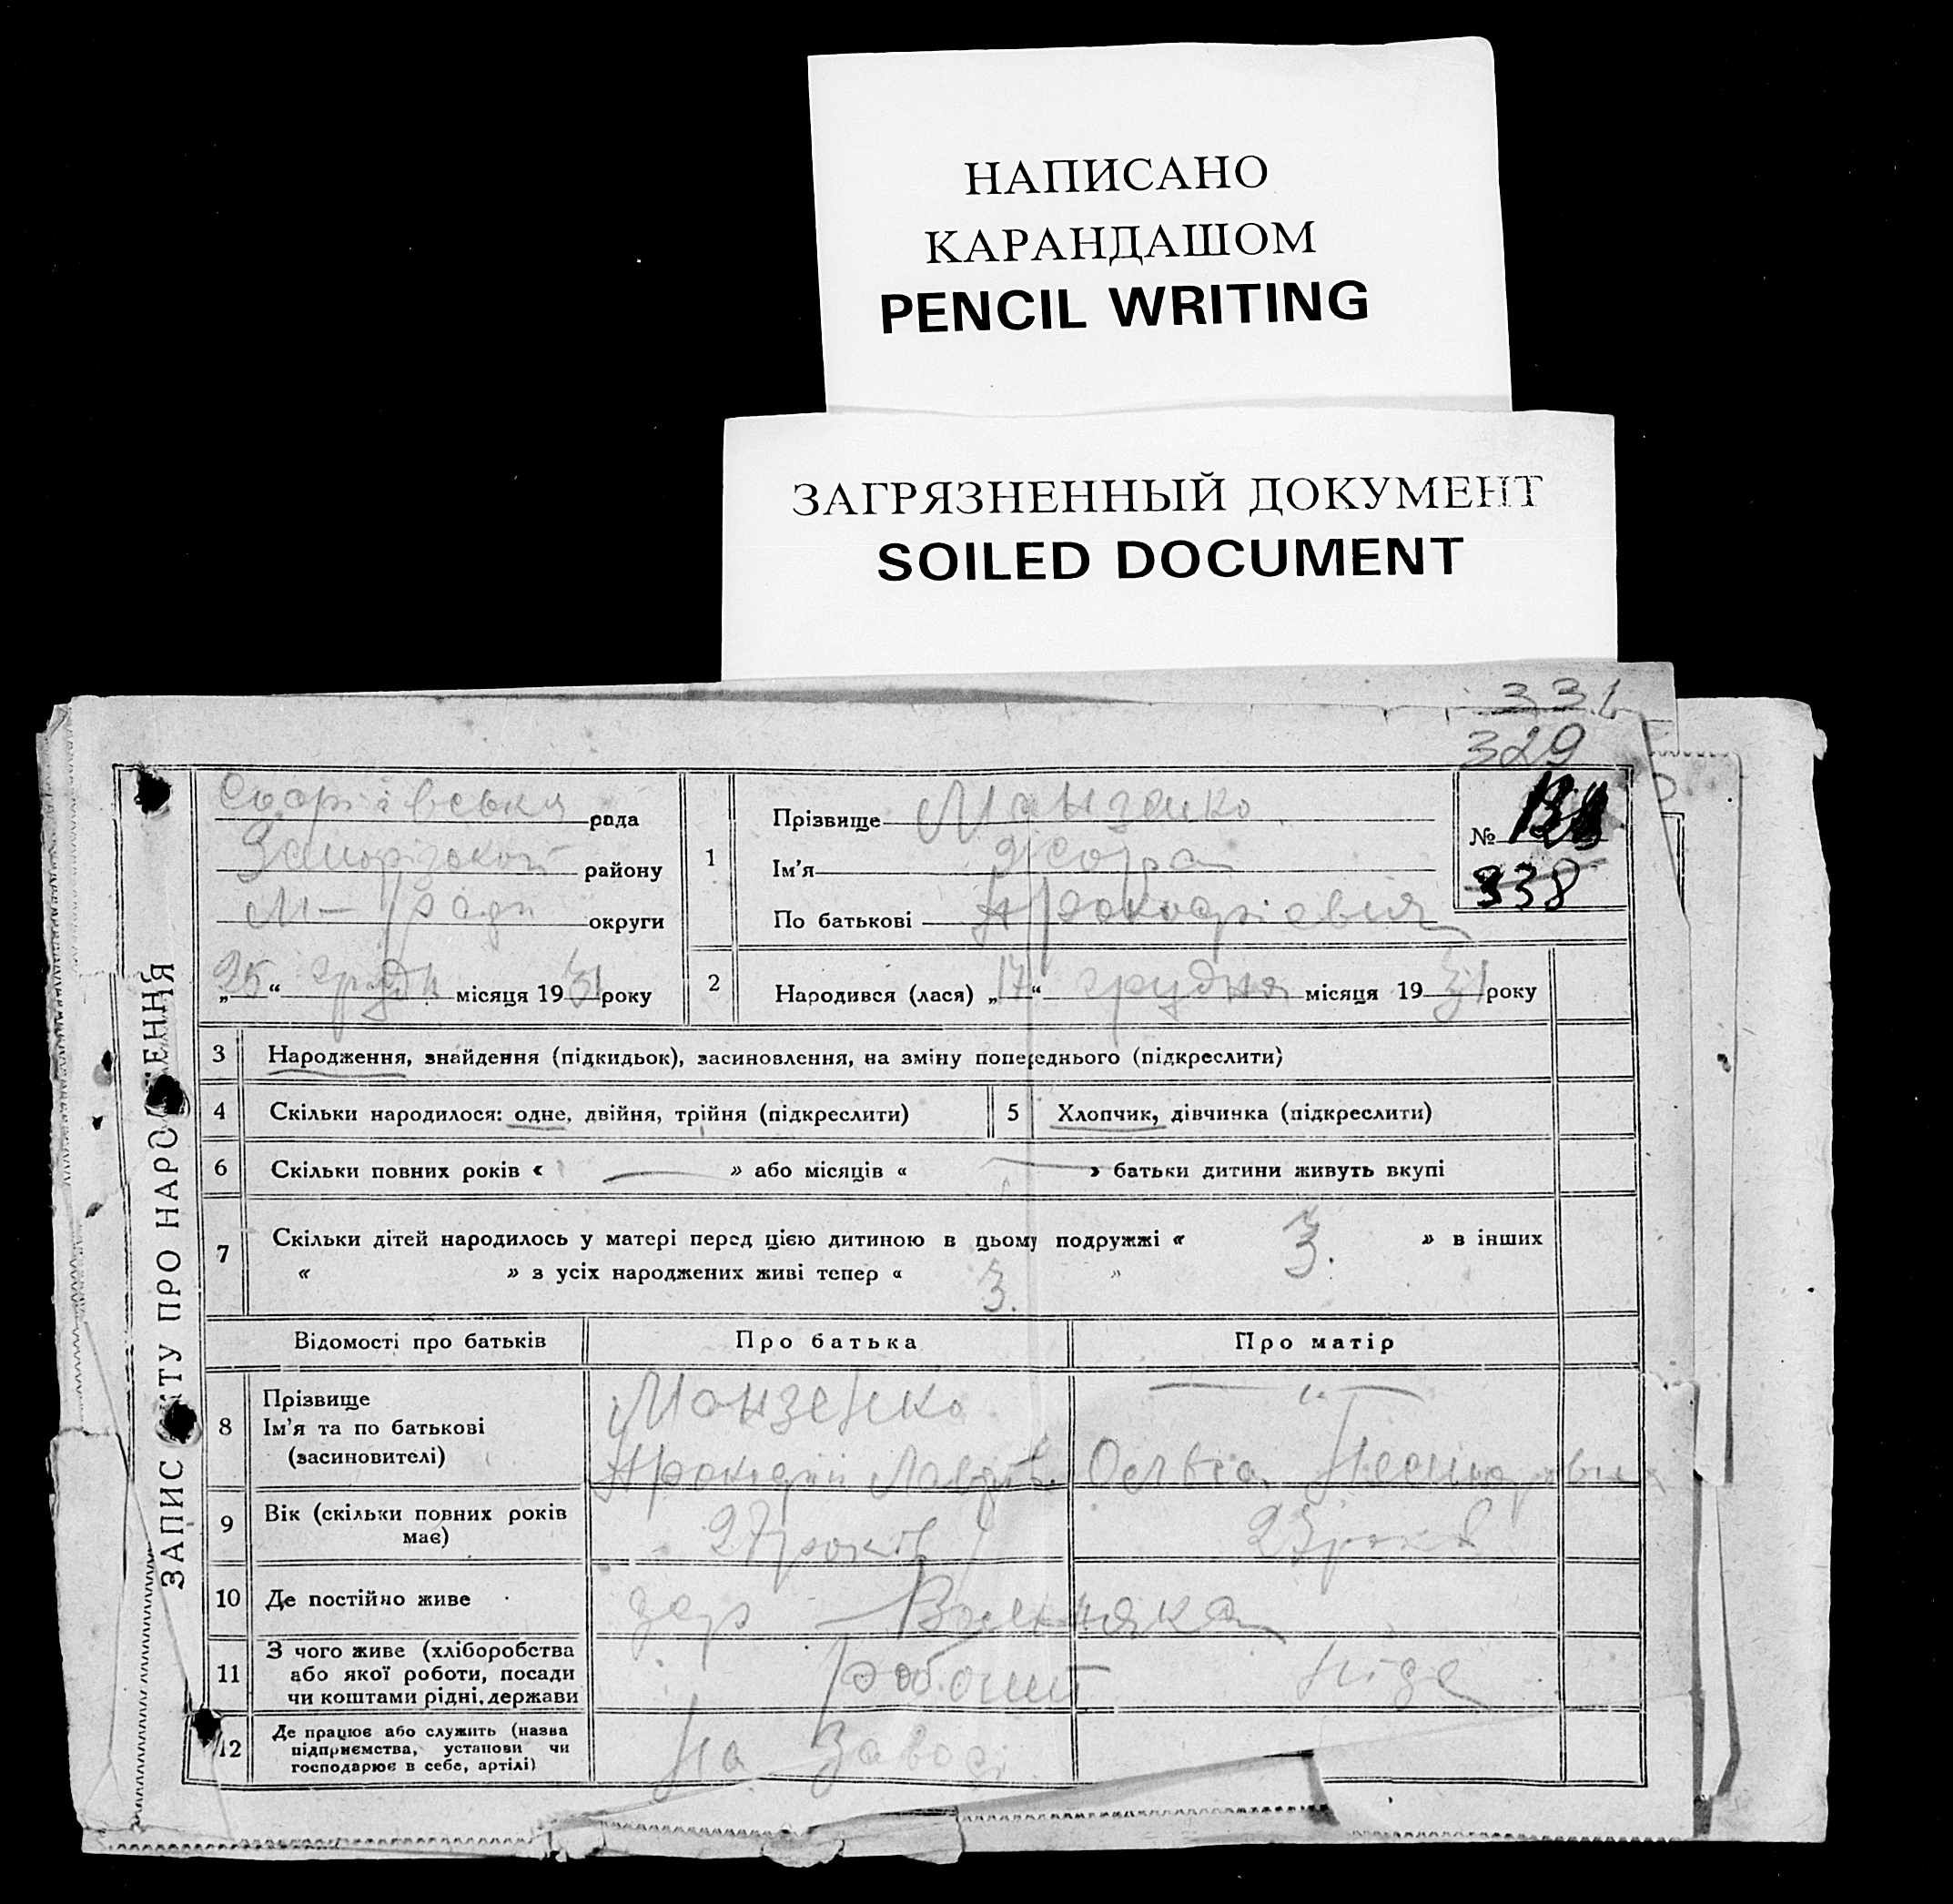 НАПИСАНО
КАРАНДАШОМ
PENCIL WRITING
ЗАГРЯЗНЕННЫЙ ДОКУМЕНТ
SOILED DOCUMENT
331
329
ЗАПИС АКТУ ПРО НАРОДЖЕННЯ
Софіївська рада
Запорізької району
М- Ради округи
„25“ грудн місяця 1931 року
1
Прізвище Манзенко
Ім'я
По батькові
№
338
2
Народився (лася) „17“ грудня місяця 1931 року
3 Народження, знайдення (підкидьок), засиновлення, на зміну попереднього (підкреслити)
4 Скільки народилося: одне, двійня, трійня (підкреслити)
5 Хлопчик, дівчинка (підкреслити)
6 Скільки повних років « — » або місяців « — » батьки дитини живуть вкупі
7 Скільки дітей народилось у матері перед цією дитиною в цьому подружжі « 3. » в інших
« » з усіх народжених живі тепер « 3. »
Відомості про батьків Про батька Про матір
8 Прізвище Манзенко — " —
Ім'я та по батькові
(засиновителі)
9 Вік (скільки повних років має) 27 років 27 років
10 Де постійно живе
11 З чого живе (хліборобства або якої роботи, посади чи коштами рідні, держави робочий ніде
12 Де працює або служить (назва підприємства, установи чи господарює в себе, артілі) На заводі